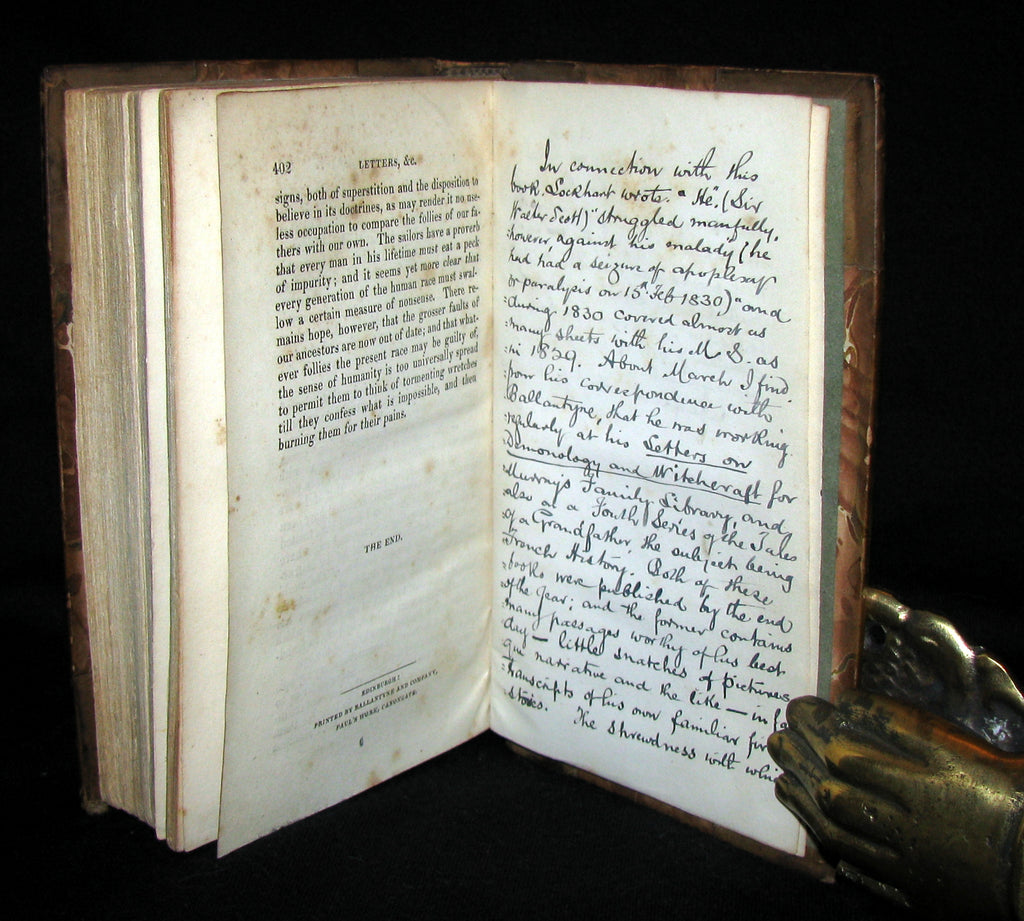 402 LETTERS, &c.
signs, both of superstition and the disposition to
believe in its doctrines, as may render it no use-
less occupation to compare the follies of our fa-
thers with our own. The sailors have a proverb
that every man in his lifetime must eat a peck
of impurity; and it seems yet more clear that
every generation of the human race must swal-
low a certain measure of nonsense. There re-
mains hope, however, that the grosser faults of
our ancestors are now out of date; and that what-
ever follies the present race may be guilty of,
the sense of humanity is too universally spread
to permit them to think of tormenting wretches
till they confess what is impossible, and then
burning them for their pains.
THE END.
EDINBURGH:
PRINTED BY BALLANTYNE AND COMPANY,
PAUL'S WORK, CANONGATE.
6
In connection with this
book. Lockhart wrote. "He". (Sir
Walter Scott) "struggled manfully,
however, against his malady (he
had had a seizure of apoplexy
or paralysis on 15th Feb 1830) "and
during 1830 covered almost as
many sheets with his M.S. as
in 1829. About March I find.
from his correspondence with
Ballantyne, that he was working
regularly at his Letters on
Demonology and Witchcraft for
Murray's Family Library, and
also on a Fourth Series of the Tales
of a Grandfather the subject being
French History. Both of these
books were published by the end
of the year; and the former contains
many passages worthy of his best
day — little snatches of picturesq
narrative and the like — in fa
transcripts of his own familiar fir
stories. The shrewdness with whi